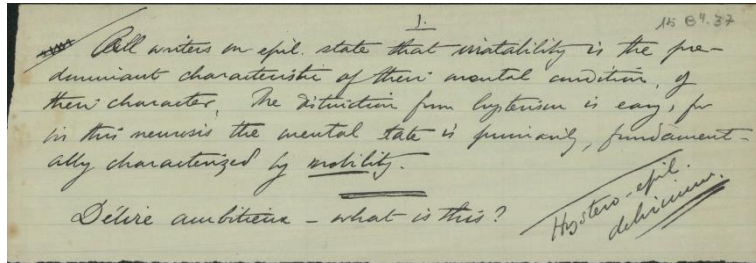 1.
15 B4.37
All writers on epil. state that irratability is the pre-
dominant characteristic of their mental condition, of
their character. The distinction from hysterism is easy, for
in this neurosis the mental state is primarily, fundament-
ally characterized by mobility.
Délire ambitieux - what is this?
Hystero-epil.
delirium.